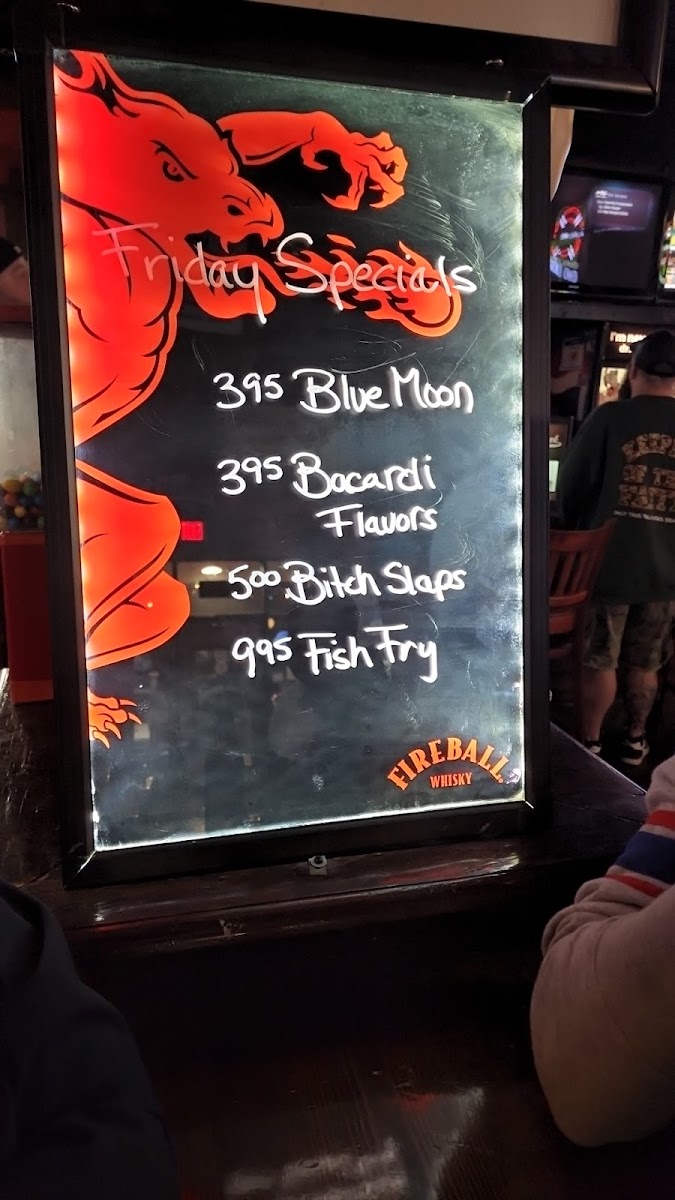 Friday Specials
395 Blue Moon
395 Bacardi
Flavors
500 Bitch Slaps
995 Fish Fry
FIREBALL
WHISKY
I'm